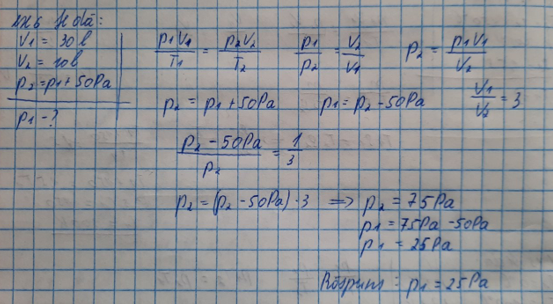 V1 = 30 l
V2 = 10 l
p2 = p1 + 50Pa
p1 - ?
p1V1/T1 = p2V2/T2   p1/p2 = V2/V1   p2 = p1V1/V2
p2 = p1 + 50Pa   p1 = p2 - 50Pa   V1/V2 = 3
p2 - 50Pa/p2 = 1/3
p2 = (p2 - 50Pa) · 3 => p2 = 75Pa
p1 = 75Pa - 50Pa
p1 = 25Pa
: p1 = 25Pa